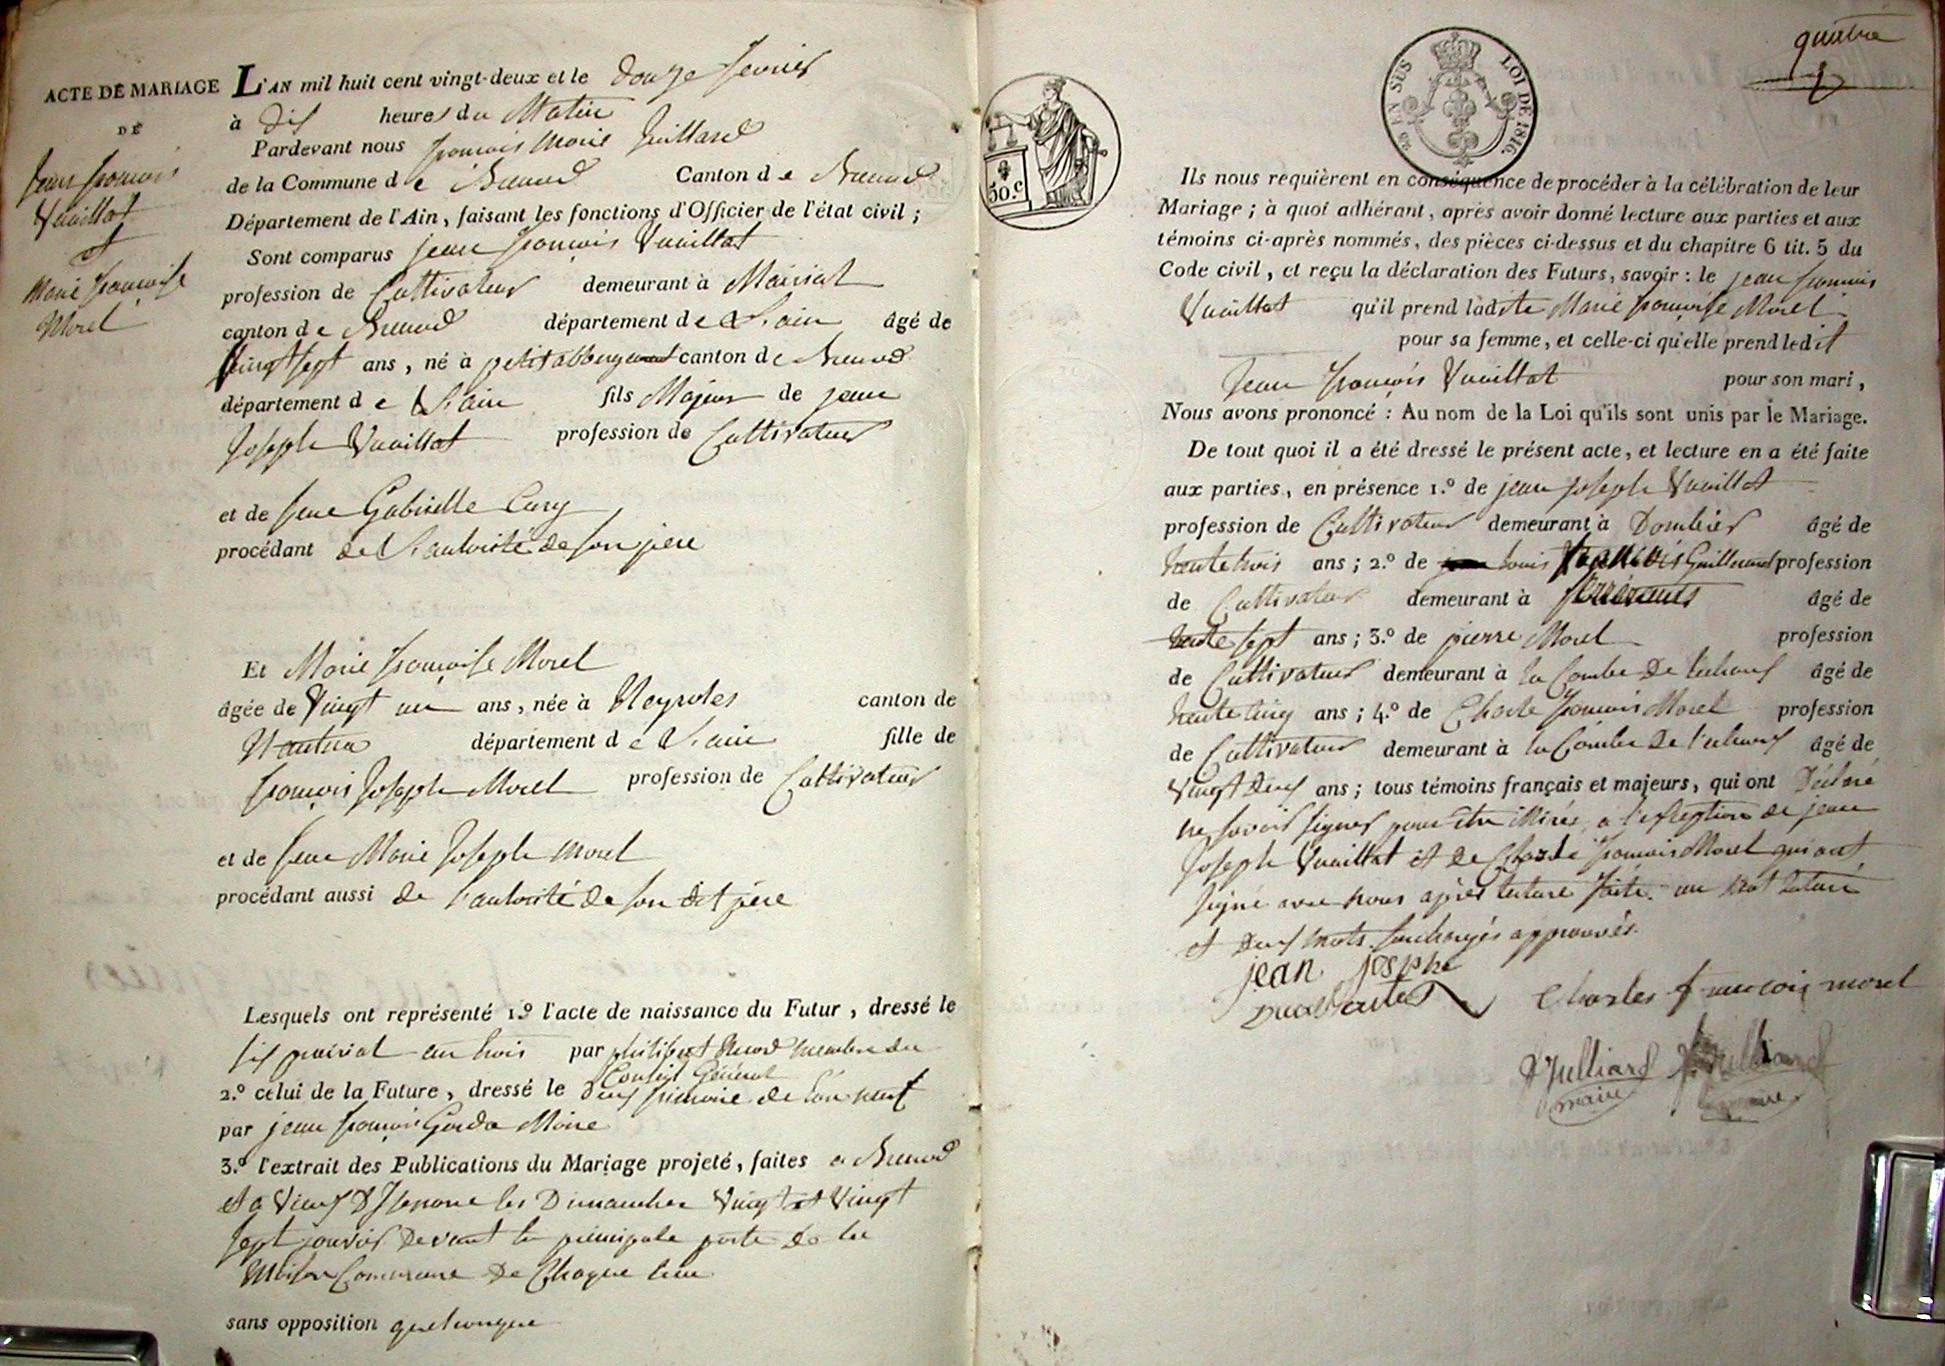 ACTE DE MARIAGE
DE
Jean françois
Vuaillat
et
Marie françoise
Morel
L'AN mil huit cent vingt-deux et le douze fevrier
à dix heures du Matin
Pardevant nous françois Marie Juillard
de la Commune de Brenod Canton de Brenod
Département de l'Ain, faisant les fonctions d'Officier de l'état civil ;
Sont comparus jean françois Vuaillat
profession de Cultivateur demeurant à Mairiat
canton de Brenod département de L'ain âgé de
vingt sept ans, né à petit abbergement canton de Brenod
département de L'ain fils Majeur de jean
Joseph Vuaillat profession de Cultivateur
et de feue Gabrielle Cary
procédant de L'autorité de son père
Et Marie françoise Morel
âgée de Vingt un ans, née à Neyroles canton de
Nantua département de L'ain fille de
françois Joseph Morel profession de Cultivateur
et de feue Marie Joseph Morel
procédant aussi de l'autorité de son dit père
Lesquels ont représenté 1.º l'acte de naissance du Futur, dressé le
six prairial an trois par philibert membre du
Conseil Général
2.º celui de la Future, dressé le deux frimaire de l'an neuf
par jean françois Goyda Maire
3.º l'extrait des Publications du Mariage projeté, faites a Brenod
et a Vieux D'Izenave les Dimanches Vingt et Vingt
sept janvier devant la principale porte de la
Maison Commune de Chaque lieu
sans opposition quelconque
50.c
EN SUS LOI DE 1816.
quatre
Ils nous requièrent en conséquence de procéder à la célébration de leur
Mariage ; à quoi adhérant, après avoir donné lecture aux parties et aux
témoins ci-après nommés, des pièces ci-dessus et du chapitre 6 tit. 5 du
Code civil, et reçu la déclaration des Futurs, savoir : le jean françois
Vuaillat qu'il prend ladite Marie françoise Morel
pour sa femme, et celle-ci qu'elle prend ledit
Jean françois Vuaillat pour son mari,
Nous avons prononcé : Au nom de la Loi qu'ils sont unis par le Mariage.
De tout quoi il a été dressé le présent acte, et lecture en a été faite
aux parties, en présence 1.º de jean joseph Vuaillat
profession de Cultivateur demeurant à Dombier âgé de
trente trois ans ; 2.º de Louis françois Guillermet profession
de Cultivateur demeurant à âgé de
trente sept ans ; 3.º de pierre Morel profession
de Cultivateur demeurant à la Combe De Lechaux âgé de
trente cinq ans ; 4.º de Charle françois Morel profession
de Cultivateur demeurant à la Combe De Lechaux âgé de
Vingt deux ans ; tous témoins français et majeurs, qui ont Déclaré
ne savoir signer pour être illitrés a l'exseption de jean
Joseph Vuaillat et de Charle françois Morel qui ont
signé avec nous après lecture faite. un mot raturé
et deux mots surchargés approuvés.
jean josphe
Charles francois morel
Julliard
maire
Julliard
maire